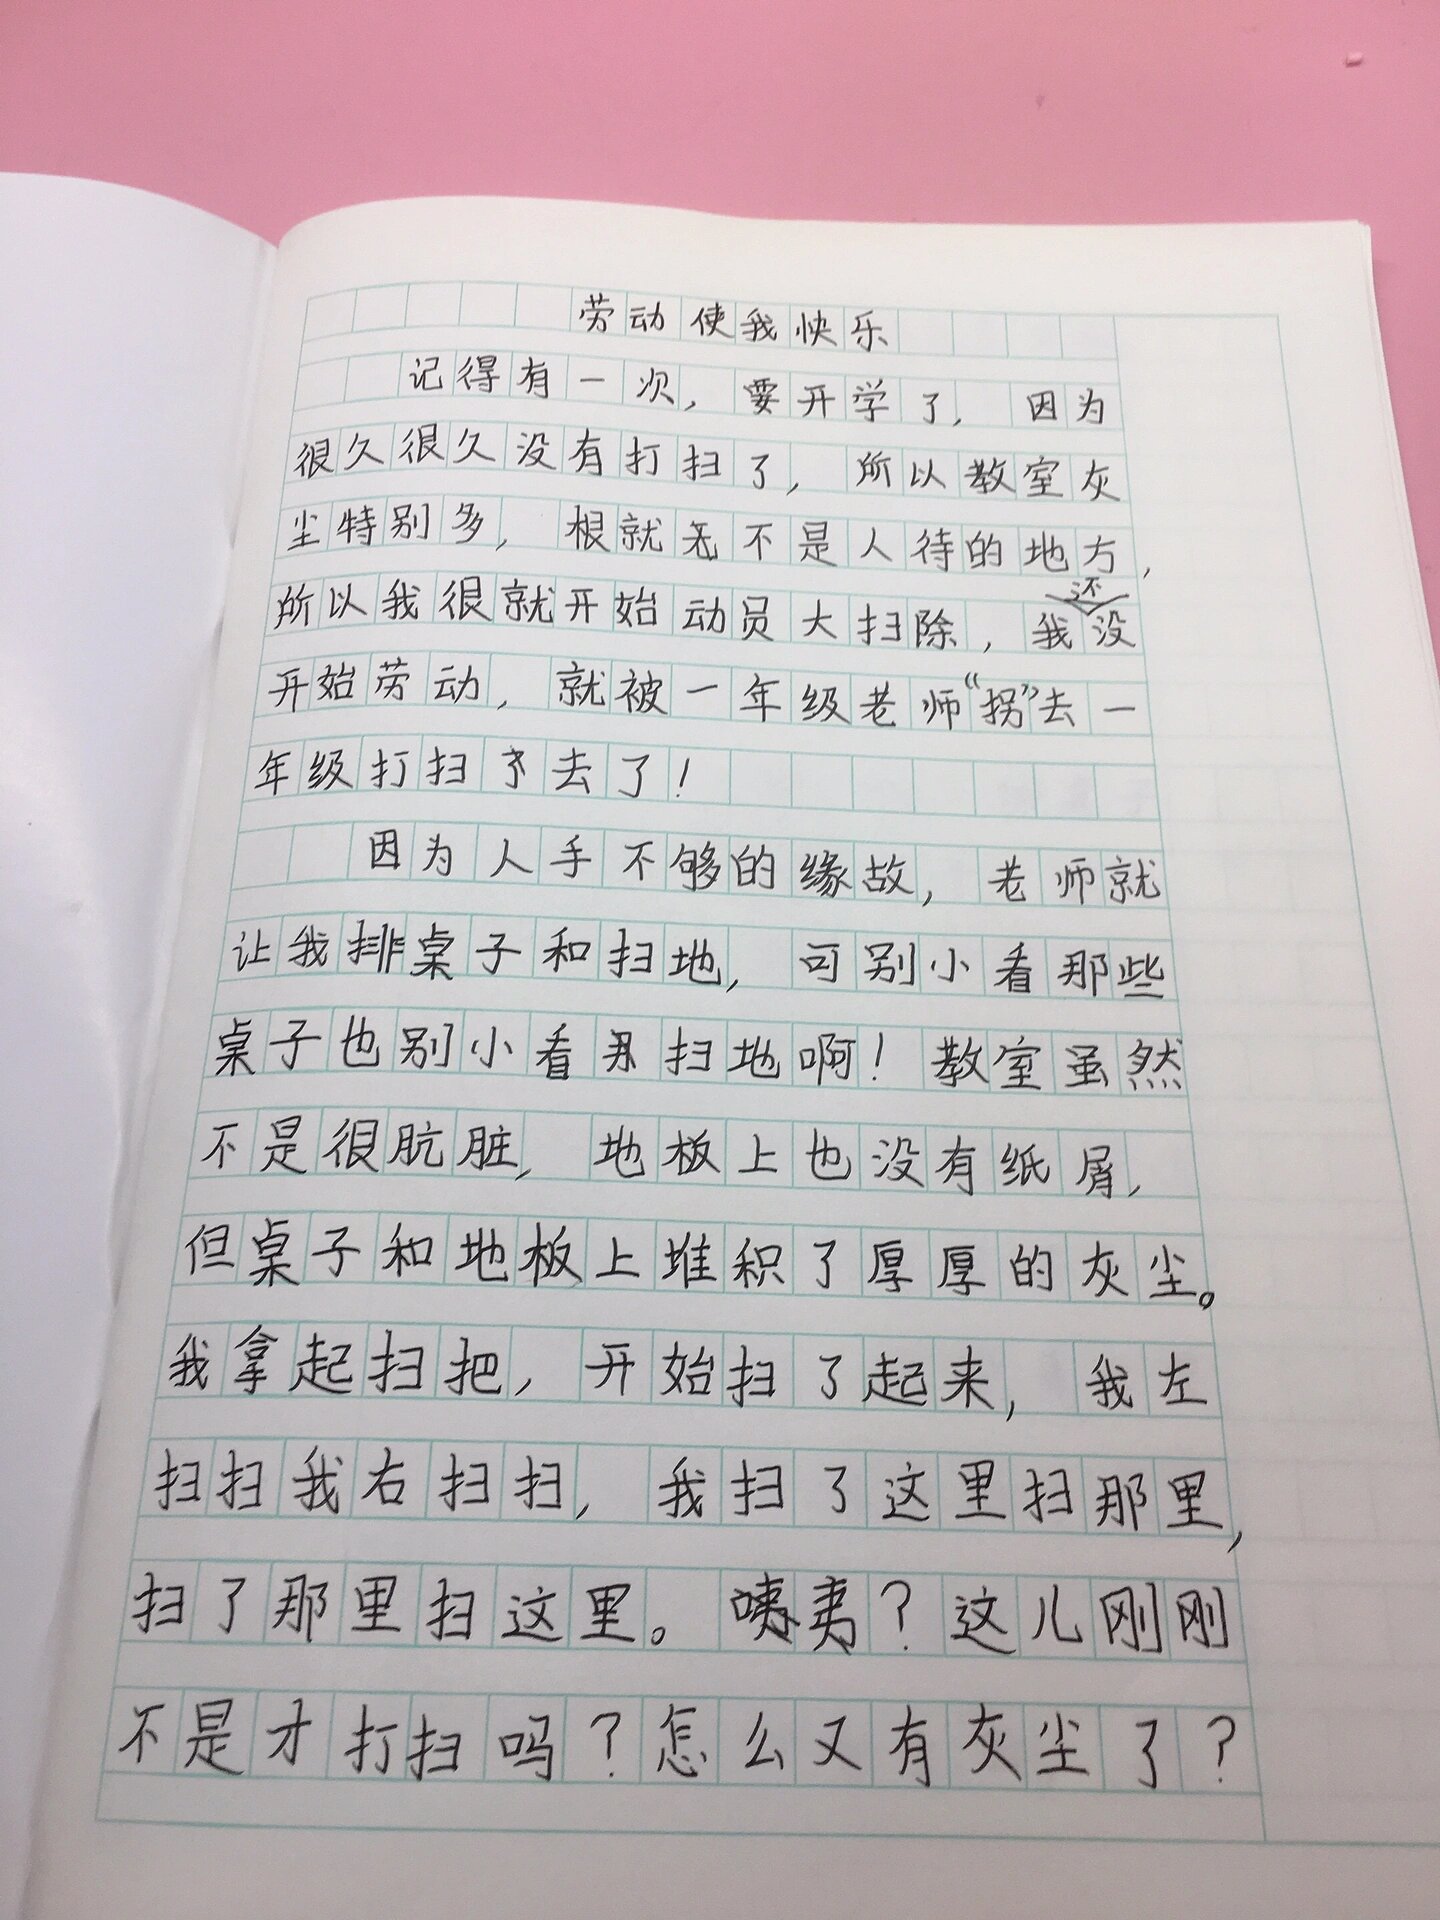 劳动使我快乐
记得有一次，要开学了，因为
很久很久没有打扫了，所以教室灰
尘特别多，根就无不是人待的地方，
所以我很就开始动员大扫除，我还没
开始劳动，就被一年级老师“拐”去一
年级打扫去了！
因为人手不够的缘故，老师就
让我排桌子和扫地，可别小看那些
桌子也别小看扫地啊！教室虽然
不是很肮脏，地板上也没有纸屑，
但桌子和地板上堆积了厚厚的灰尘。
我拿起扫把，开始扫了起来，我左
扫扫我右扫扫，我扫了这里扫那里，
扫了那里扫这里。咦？这儿刚刚
不是才打扫吗？怎么又有灰尘了？